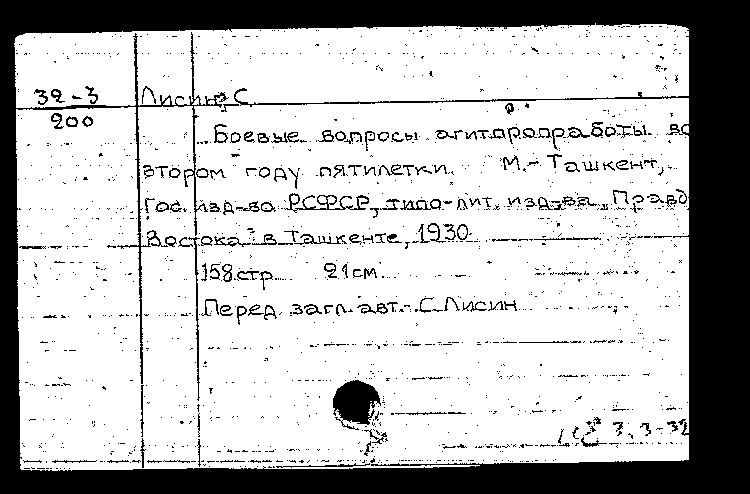 32-3
200
Лисин, С.
Боевые вопросы агитпропработы во
втором году пятилетки. М.-Ташкент,
Гос. изд-во РСФСР, типо-лит. изд-ва „Правд
Востока" в Ташкенте, 1930
158 стр. 21 см.
Перед загл. авт.: С. Лисин
3.3-32